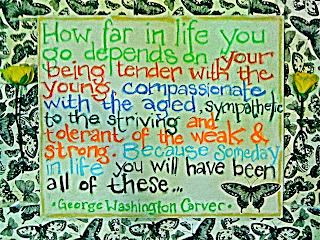 How far in life you
go depends on your
being tender with the
young, compassionate
with the aged, sympathetic
to the striving and
tolerant of the weak &
strong. Because someday
in life you will have been
all of these...
· George Washington Carver ·